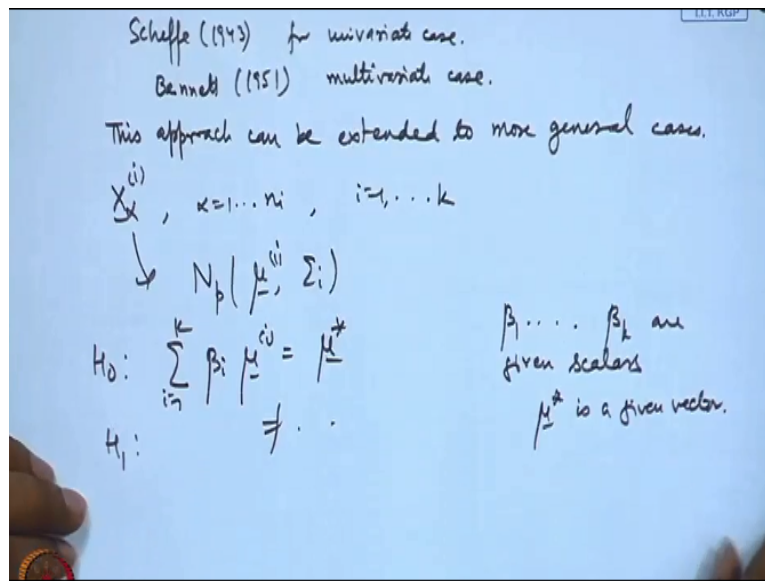 I.I.T. KGP
Scheffe (1943) for univariate case.
Bennett (1951) multivariate case.
This approach can be extended to more general cases.
X_α^(i), α=1...n_i, i=1,...k
N_p(μ^(i), Σ_i)
H_0: Σ_{i=1}^k β_i μ^(i) = μ^*
β_1 .... β_k are
given scalars
μ^* is a given vector.
H_1: ≠ . .